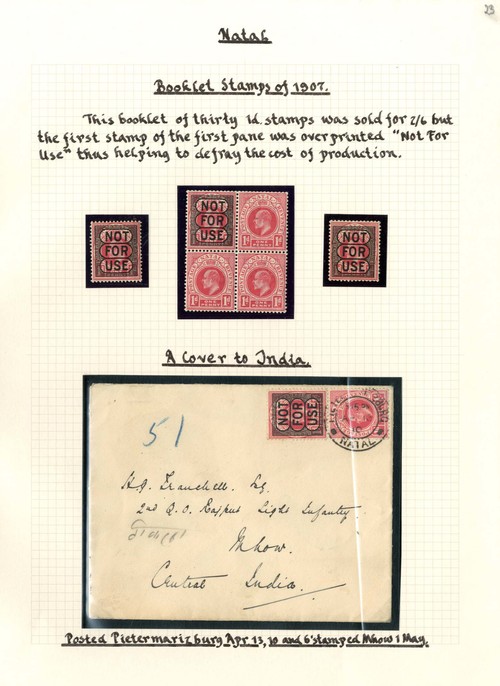 23
Natal
Booklet Stamps of 1907.
This booklet of thirty 1d. stamps was sold for 2/6 but
the first stamp of the first pane was overprinted "Not For
Use" thus helping to defray the cost of production.
NOT
FOR
USE
1d
1d
1d
NOT
FOR
USE
NOT
FOR
USE
A Cover to India.
NOT
FOR
USE
NATAL
51
2nd Q.O. Rajput Light Infantry
Mhow.
Central India
Posted Pietermarizburg Apr. 13, 10 and b'stamped Mhow 1 May.